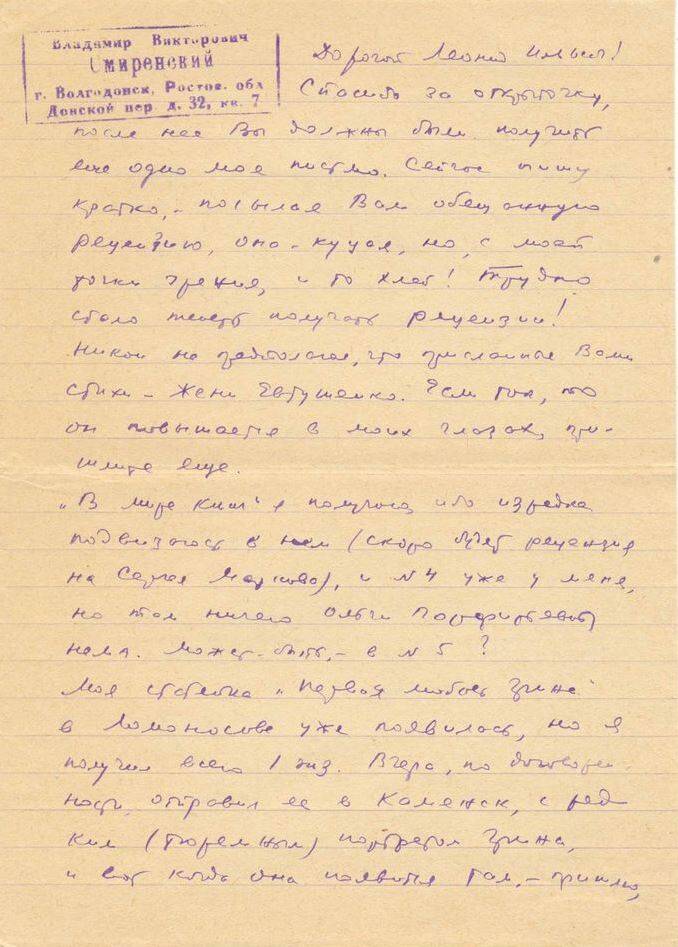 Владимир Викторович
Смиренский
г. Волгодонск, Ростов. обл
Донской пер д. 32, кв. 7
Дорогой Леонид Ильич!
Спасибо за открыточку,
после нее Вы должны были получить
еще одно мое письмо. Сейчас пишу
кратко, - посылая Вам обещанную
рецензию, она - куцая, но, с моей
точки зрения, и то хлеб! Трудно
стало теперь получать рецензии!
Никак не предполагал, что присланные Вами
стихи - Жени Евтушенко. Если так, то
он повышается в моих глазах, при-
шлите еще.
„В мире книг" я получаю, ибо изредка
подвизаюсь в нем (скоро будет рецензия
на Сергея Маркова), и N 4 уже у меня,
но там ничего Ольги Порфирьевны
нема. Может-быть, - в N 5 ?
Моя статейка „Первая любовь Грина"
в Ломоносове уже появилась, но я
получил всего 1 экз. Вчера, по договорен-
ности, отправил ее в Каменск, с ред-
ким (тюремным) портретом Грина,
и вот когда она появится там, - пришлю,